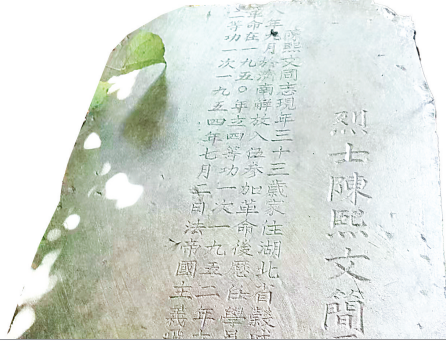 烈士陳熙文簡
陳熙文同志現年三十三歲家住湖北省穀
八年九月於濟南解放入伍參加革命後歷任學員
革命在一九五〇年立四等功一次一九五二年
二等功一次一九五四年七月二日法帝國主義